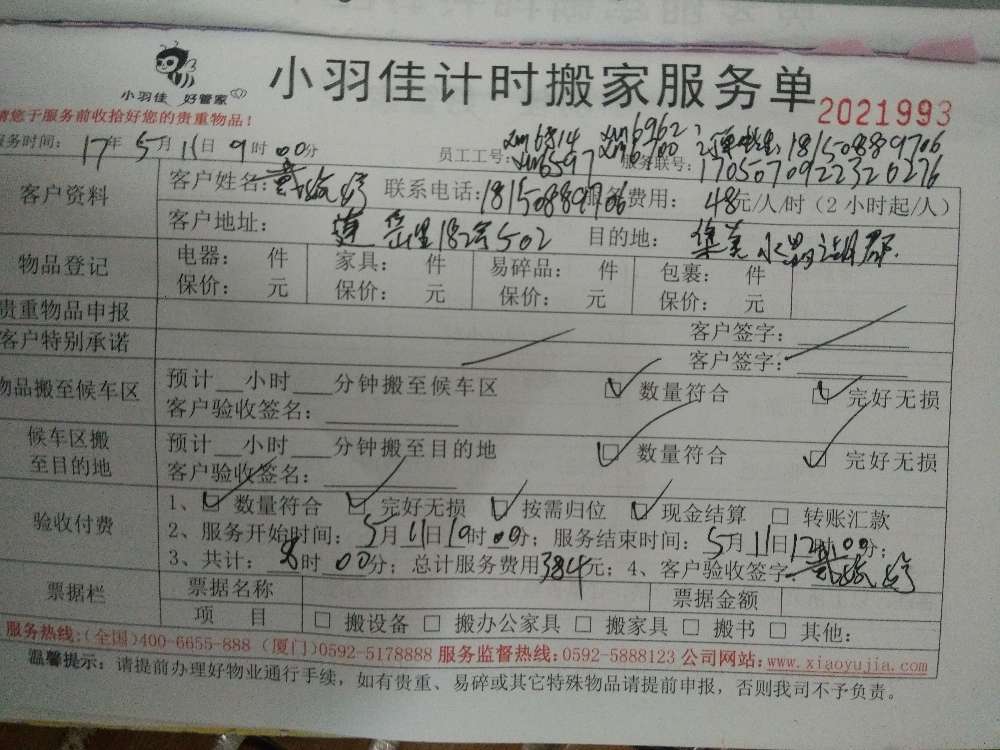 小羽佳 好管家
小羽佳计时搬家服务单
2021993
请您于服务前收拾好您的贵重物品!
服务时间: 17年 5月 11日 9时 00分 员工工号: 6814 6962 18150889706
6597 服务联号: 1705070922320276
客户资料 客户姓名: 联系电话: 18150889706 服务费用: 48元/人/时 (2小时起/人)
客户地址: 莲 里18号502 目的地: 集美水晶湖郡
物品登记 电器: 件 家具: 件 易碎品: 件 包裹: 件
保价: 元 保价: 元 保价: 元 保价: 元
贵重物品申报 客户签字:
客户特别承诺 客户签字:
物品搬至候车区 预计 小时 分钟搬至候车区 ☑ 数量符合 ☑ 完好无损
客户验收签名:
候车区搬至目的地 预计 小时 分钟搬至目的地 ☑ 数量符合 ☑ 完好无损
客户验收签名:
验收付费 1、☑ 数量符合 ☑ 完好无损 ☑ 按需归位 ☑ 现金结算 □ 转账汇款
2、服务开始时间: 5月11日10时00分; 服务结束时间: 5月11日12时00分;
3、共计: 8时 00分; 总计服务费用384元; 4、客户验收签字
票据栏 票据名称 票据金额
项 目 □ 搬设备 □ 搬办公家具 □ 搬家具 □ 搬书 □ 其他:
服务热线:(全国)400-6655-888 (厦门)0592-5178888 服务监督热线:0592-5888123 公司网站:www.xiaoyujia.com
温馨提示: 请提前办理好物业通行手续, 如有贵重、易碎或其它特殊物品请提前申报, 否则我司不予负责。